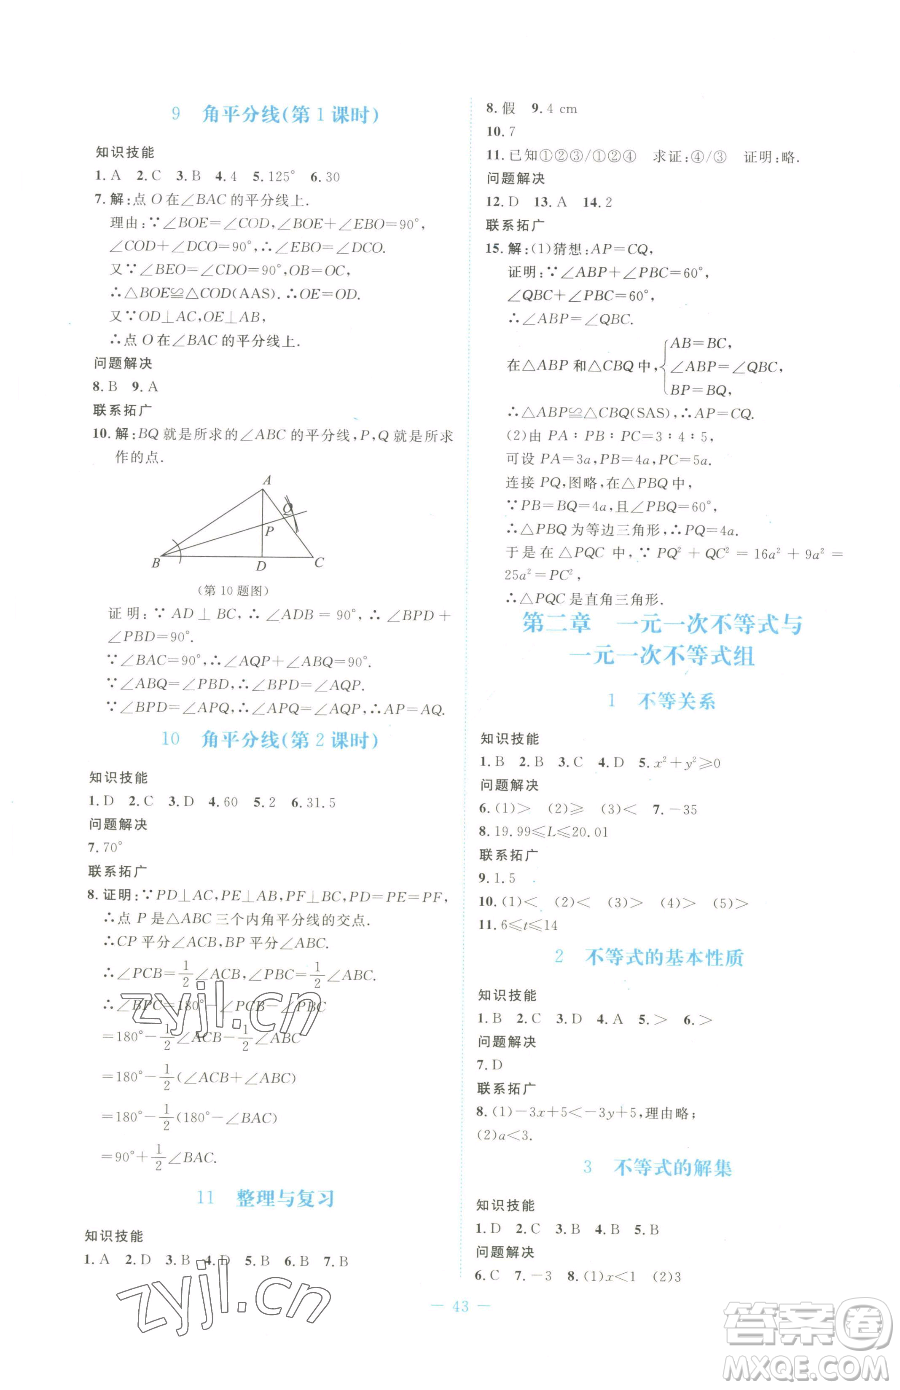 9 角平分线(第1课时)
知识技能
1. A 2. C 3. B 4. 4 5. 125° 6. 30
7. 解:点O在∠BAC的平分线上.
理由:∵∠BOE=∠COD,∠BOE+∠EBO=90°,
∠COD+∠DCO=90°,∴∠EBO=∠DCO.
又∵∠BEO=∠CDO=90°,OB=OC,
∴△BOE≌△COD(AAS).∴OE=OD.
又∵OD⊥AC,OE⊥AB,
∴点O在∠BAC的平分线上.
问题解决
8. B 9. A
联系拓广
10. 解:BQ就是所求的∠ABC的平分线,P,Q就是所求
作的点.
A
Q
P
B D C
(第10题图)
证明:∵AD⊥BC,∴∠ADB=90°,∴∠BPD+
∠PBD=90°.
∵∠BAC=90°,∴∠AQP+∠ABQ=90°.
∵∠ABQ=∠PBD,∴∠BPD=∠AQP.
∵∠BPD=∠APQ,∴∠APQ=∠AQP,∴AP=AQ.
10 角平分线(第2课时)
知识技能
1. D 2. C 3. D 4. 60 5. 2 6. 31.5
问题解决
7. 70°
联系拓广
8. 证明:∵PD⊥AC,PE⊥AB,PF⊥BC,PD=PE=PF,
∴点P是△ABC三个内角平分线的交点.
∴CP平分∠ACB,BP平分∠ABC.
∴∠PCB=1/2∠ACB,∠PBC=1/2∠ABC.
∴∠BPC=180°-∠PCB-∠PBC
=180°-1/2∠ACB-1/2∠ABC
=180°-1/2(∠ACB+∠ABC)
=180°-1/2(180°-∠BAC)
=90°+1/2∠BAC.
11 整理与复习
知识技能
1. A 2. D 3. B 4. D 5. B 6. B 7. B
8. 假 9. 4 cm
10. 7
11. 已知①②③/①②④ 求证:④/③ 证明:略.
问题解决
12. D 13. A 14. 2
联系拓广
15. 解:(1)猜想:AP=CQ,
证明:∵∠ABP+∠PBC=60°,
∠QBC+∠PBC=60°,
∴∠ABP=∠QBC.
在△ABP和△CBQ中,{AB=BC,
∠ABP=∠QBC,
BP=BQ,
∴△ABP≌△CBQ(SAS),∴AP=CQ.
(2)由PA∶PB∶PC=3∶4∶5,
可设PA=3a,PB=4a,PC=5a.
连接PQ,图略,在△PBQ中,
∵PB=BQ=4a,且∠PBQ=60°,
∴△PBQ为等边三角形,∴PQ=4a.
于是在△PQC中,∵PQ²+QC²=16a²+9a²=
25a²=PC²,
∴△PQC是直角三角形.
第二章 一元一次不等式与
一元一次不等式组
1 不等关系
知识技能
1. B 2. B 3. C 4. D 5. x²+y²≥0
问题解决
6. (1)> (2)≥ (3)< 7. -35
8. 19.99≤L≤20.01
联系拓广
9. 1.5
10. (1)< (2)< (3)> (4)> (5)>
11. 6≤t≤14
2 不等式的基本性质
知识技能
1. B 2. C 3. D 4. A 5. > 6. >
问题解决
7. D
联系拓广
8. (1)-3x+5<-3y+5,理由略;
(2)a<3.
3 不等式的解集
知识技能
1. D 2. C 3. B 4. B 5. B
问题解决
6. C 7. -3 8. (1)x<1 (2)3
— 43 —
zyjl.cn
zyjl.cn
答案圈
MXQE.COM